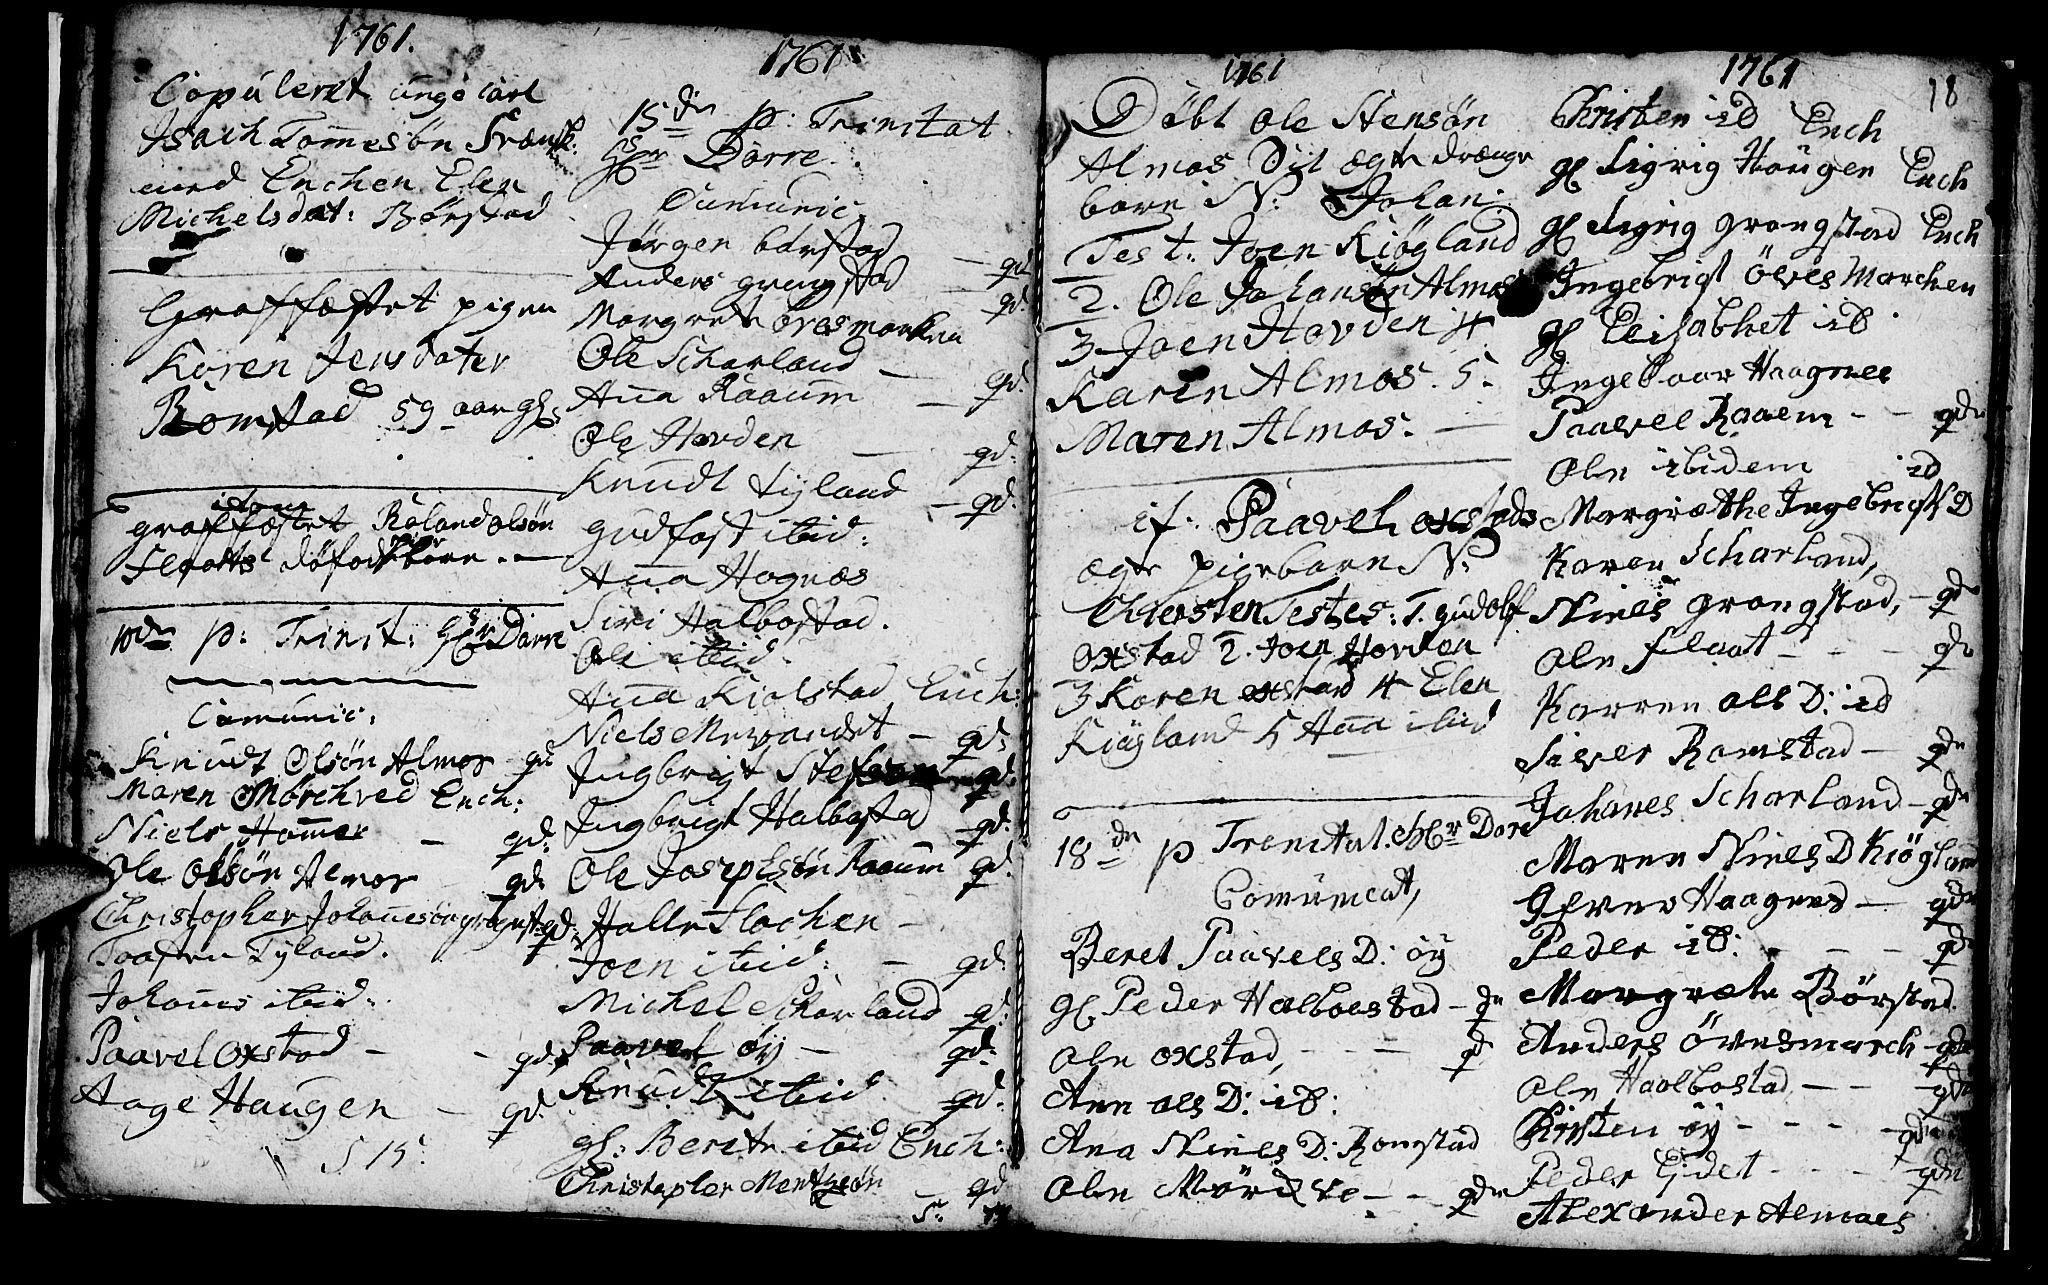 1761.
Copuleret unge karl
Isach Tomesøn Svensk.
med Enchen Elen
Michelsdat: Børstad
Grafføstet pigen
Karen Jensdater
Romstad 59 aar gl:
Grafføstet Roland olsøn
Flaatts døfød barn. -
10de p: Trinit: Hr Dorre
Comunic:
Knudt Olsøn Almos qd
Maren Mørchved Ench:
Niels Hamer - qd.
Ole Olsøn Almos qd
Christopher Johanesøn qd.
Tyland.
Johanes ibid:
Paavel Oxstad - - qd
Aage Haugen - qd.
S 15.
1761
15de p: Trinitat
Hr Dorre.
Comunic
Jørgen børstad - qd
Anders grongstad - qd.
Margrete øvesmarken
Ole Scharland - qd.
Ana Raaum -
Ole Hovden - qd.
Knudt Tyland - qd.
gudfast ibid:
Ana Hognæs
Siri Halbostad.
Ole ibid.
Ana Kiolstad Ench:
Niels - qd:
Ingbrigt qd.
Ingbrigt Halbostad - qd.
Ole Josephsøn Raaum qd.
Halle Flachen -
Joen ibid: - qd.
Michel Scharland qd:
Paavel øy - qd.
Knudt ibid qd.
gl: Berete ibid Ench:
Christopher Mentzsøn - qd
1761
Döbt Ole Stensön
Almos Sit ægte drænge
barn N: Johan
Test: Joen Kiögland
2. Ole Johansøn Almos
3 Joen Hovden 4
Karen Almos. 5.
Maren Almos. -
if. Paavel oxstads
ægte pigebarn N:
Chiersten Testes: 1. gudolf
Oxstad 2. Joen Hovden
3 Karen oxstad 4 Elen
Kiögland 5 Ana ibid
18de p Trenitat. Hr Dore
Comunicat,
Beret Paavels D: öy
gl Peder Halboestad - qdn
Ole oxstad, - - - qd
Ann ols D: ib:
Ana Niels D: Romstad
Ole Mörckve - - qdn
1761
18
Christen ib Ench
gl Sigrig Haugen Ench
gl Sigrig grongstad Ench
Ingebrigt öves Marchen
gl Elisabhet ib
Ingebaar Haagnes
Paavel Raaem - - qdn
Ole ibidem ib
Margrethe Ingebrigt D
Karen Scharland,
Niels grongstad, - qdn
Ole flaat - - - qdn
Karren ols D: ib
Siver Romstad - qdn
Johanes Scharland - qdn
Maren Niels D Kiögland
Haagnes - qdn
Peder ib: - - qdn
Margrete Börstad
Anders övnsmarch - qdn
Ole Haalbostad - - qdn
Christen öy - - - - qdn
Peder Eidet - - - qdn
Alexander Almaes